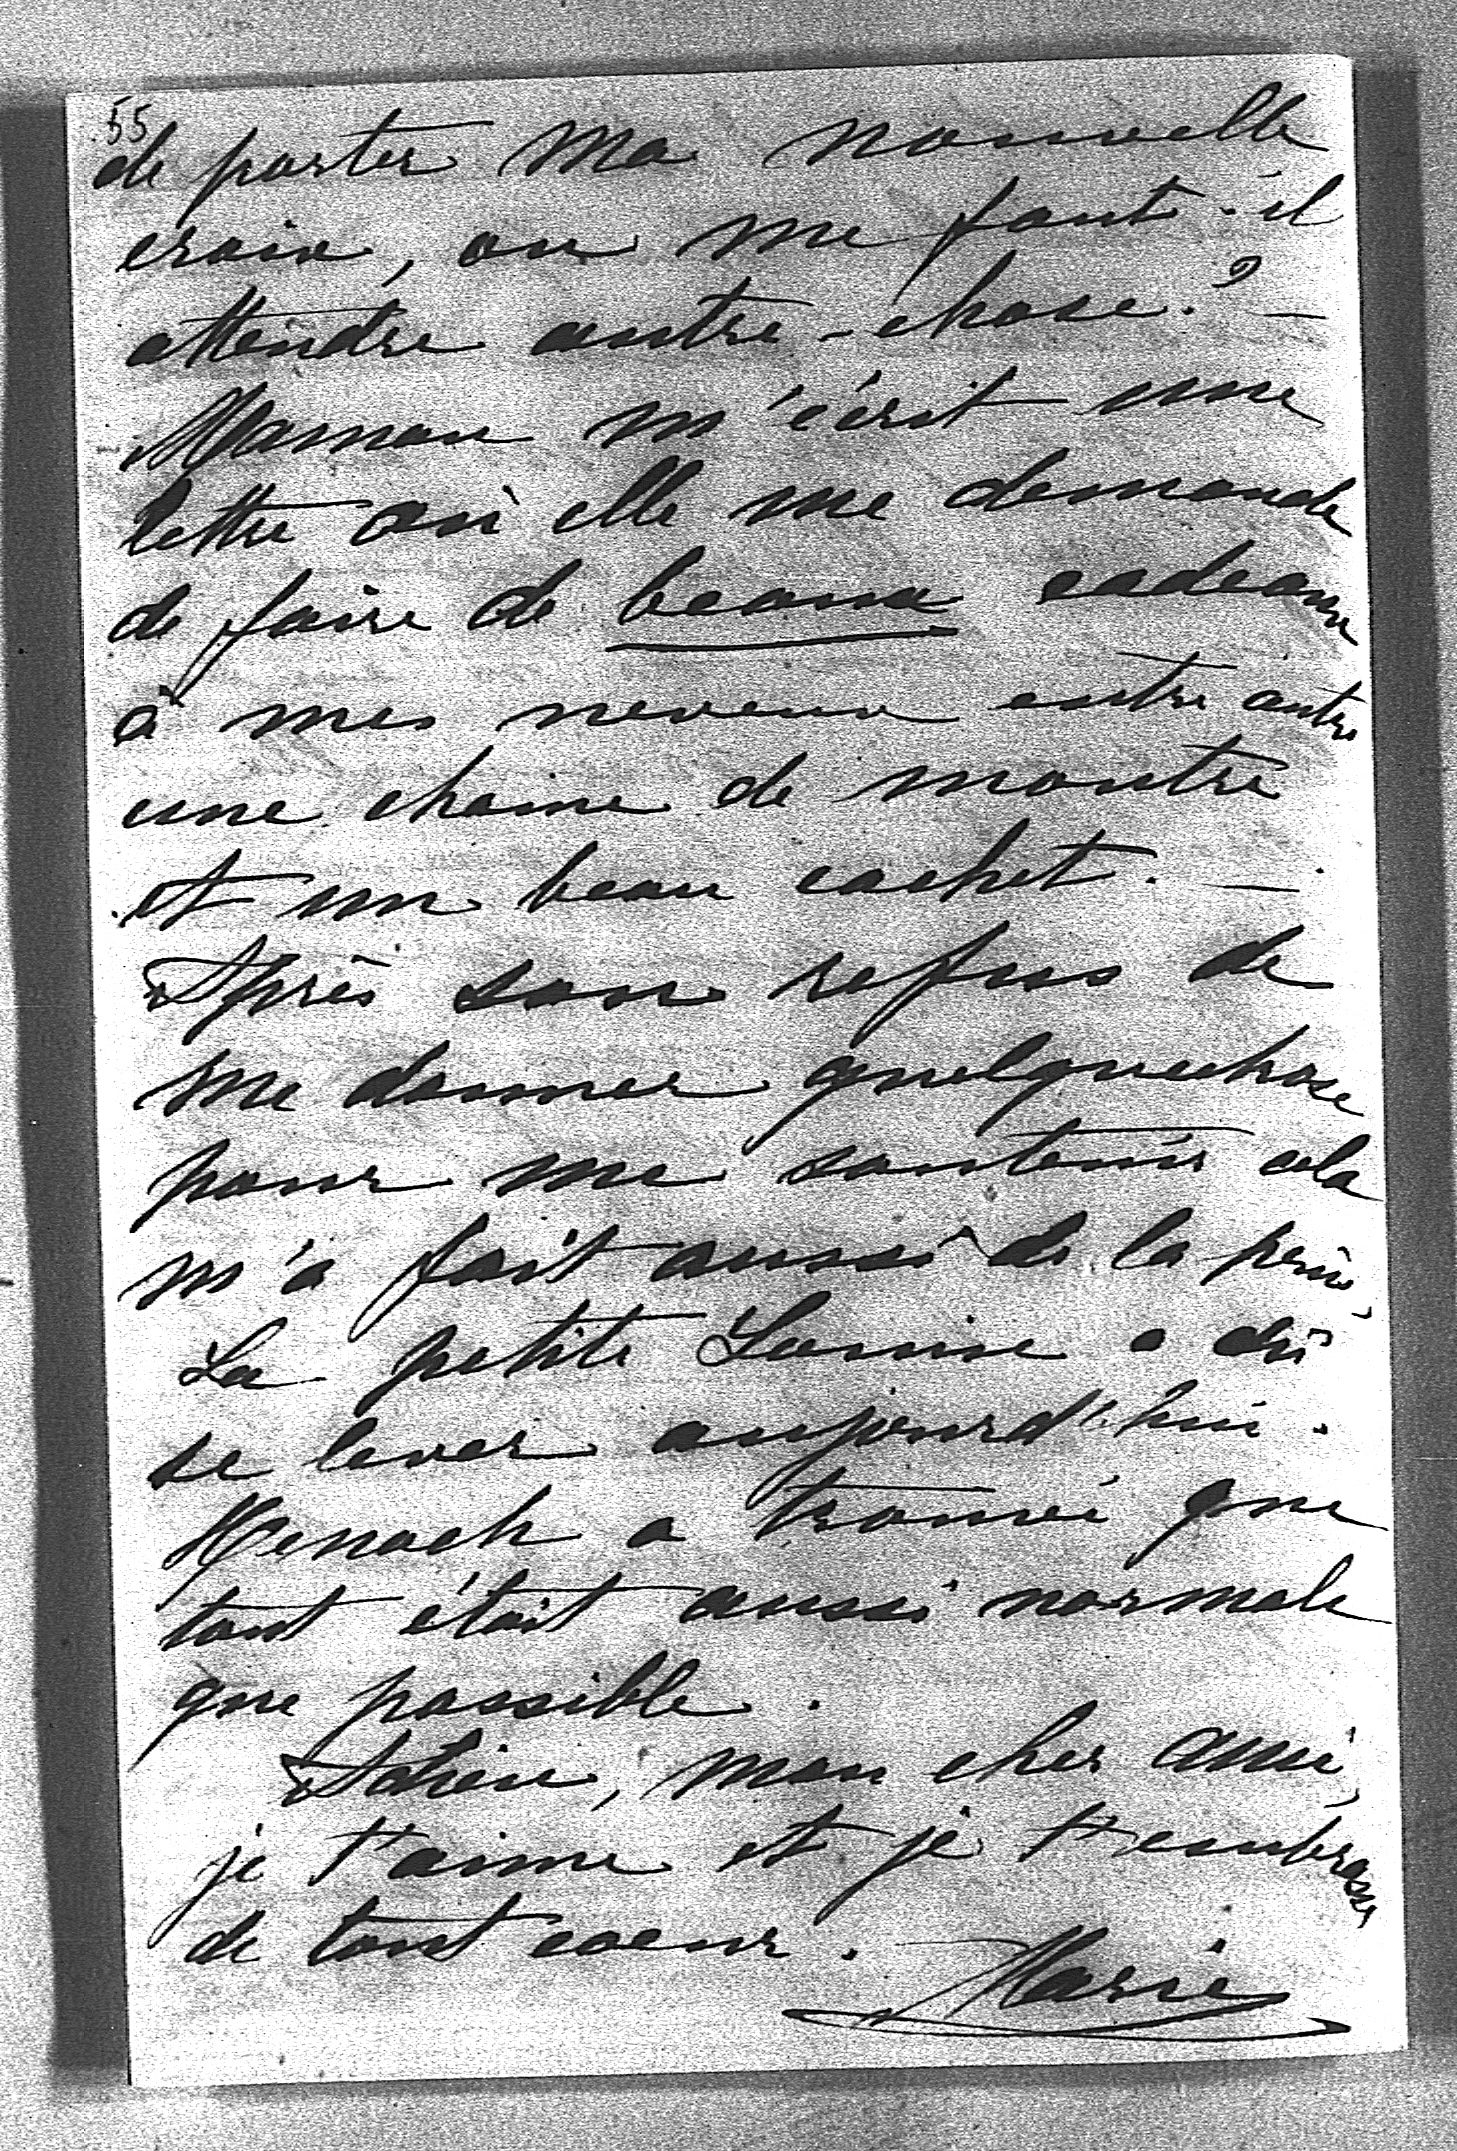 55
de porter ma nouvelle
croix, ou me faut-il
attendre autre-chose? —
Maman m'écrit une
lettre où elle me demande
de faire de beaux cadeaux
à mes neveux entre autres
une chaine de montre
et un beau cachet. —
Après son refus de
me donner quelquechose
pour me soutenir cela
m'a fait aussi de la peine,
La petite Louise a dû
se lever aujourd'hui.
Henoch a trouvé que
tout était aussi normale
que possible.
Adieu, mon cher ami,
je t'aime et je t'embrasse
de tout coeur.
Marie